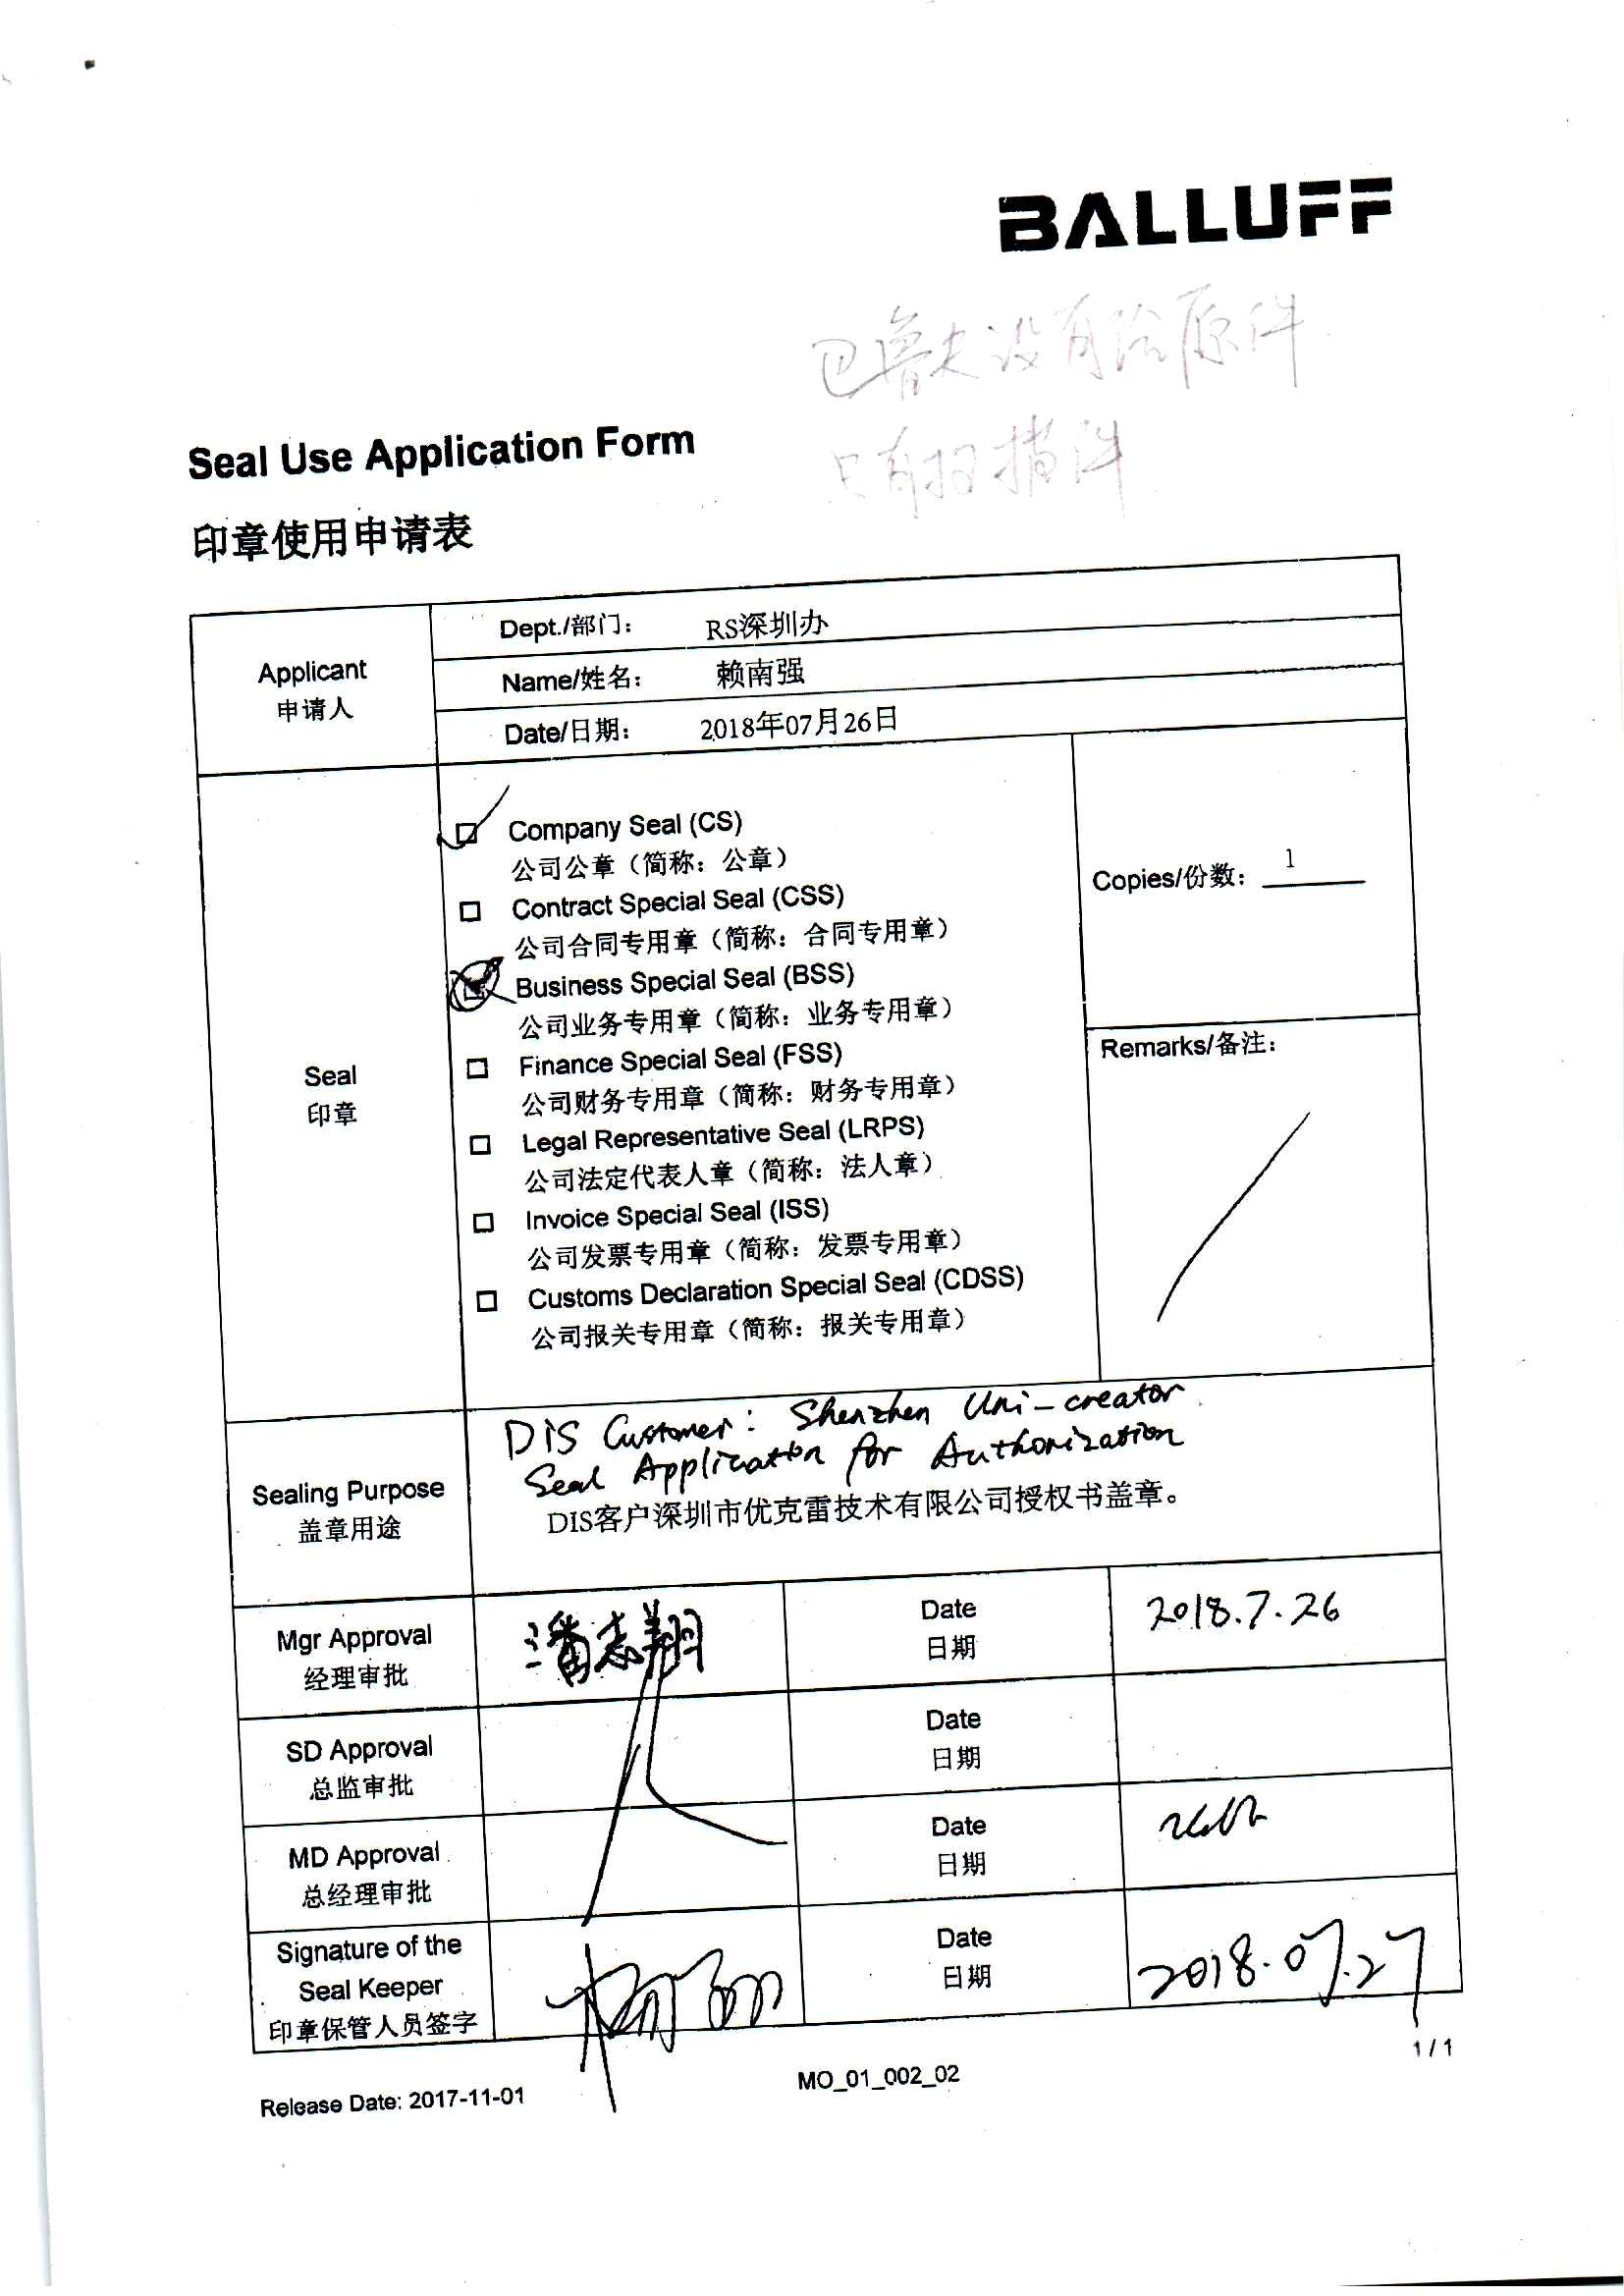 BALLUFF
巴鲁夫没有给原件
只有扫描件
Seal Use Application Form
印章使用申请表
Applicant
申请人
Dept./部门: RS深圳办
Name/姓名: 赖南强
Date/日期: 2018年07月26日
Seal
印章
Company Seal (CS)
公司公章（简称：公章）
Contract Special Seal (CSS)
公司合同专用章（简称：合同专用章）
Business Special Seal (BSS)
公司业务专用章（简称：业务专用章）
Finance Special Seal (FSS)
公司财务专用章（简称：财务专用章）
Legal Representative Seal (LRPS)
公司法定代表人章（简称：法人章）
Invoice Special Seal (ISS)
公司发票专用章（简称：发票专用章）
Customs Declaration Special Seal (CDSS)
公司报关专用章（简称：报关专用章）
Copies/份数: 1
Remarks/备注:
Sealing Purpose
盖章用途
DIS Customer: Shenzhen Uni-creator.
Seal Application for Authorization
DIS客户深圳市优克雷技术有限公司授权书盖章。
Mgr Approval
经理审批
潘志翔
Date
日期
2018.7.26
SD Approval
总监审批
Date
日期
MD Approval
总经理审批
Date
日期
Signature of the
Seal Keeper
印章保管人员签字
Date
日期
2018.07.27
1 / 1
MO_01_002_02
Release Date: 2017-11-01